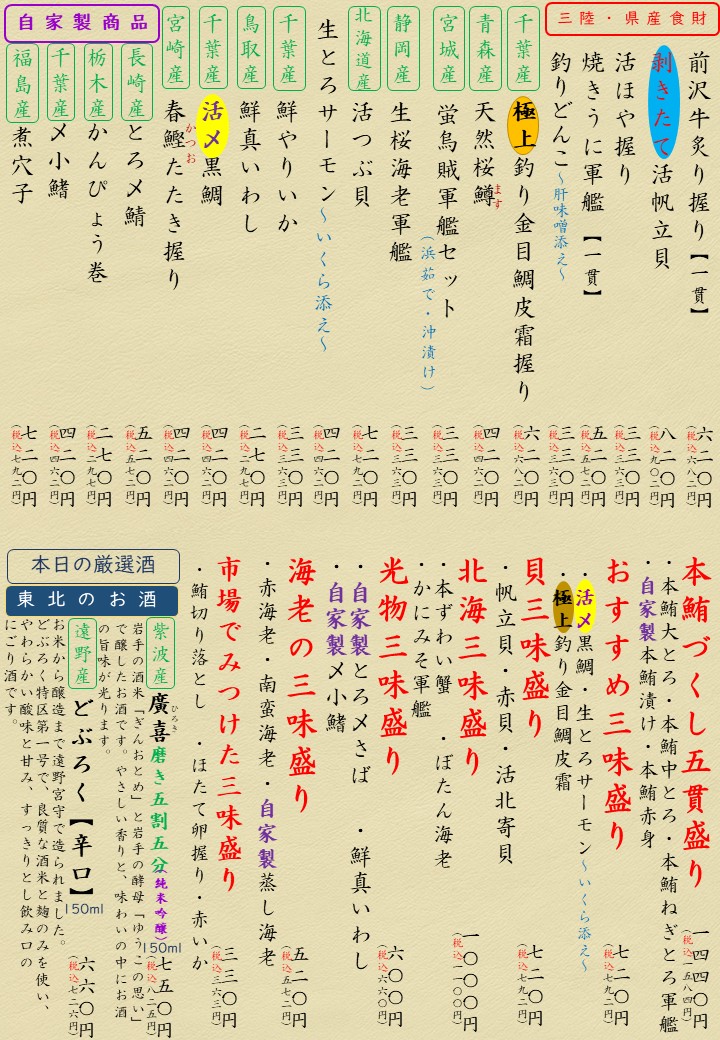 三陸・県産食財
前沢牛炙り握り【一貫】
六二〇円
(税込六八二円)
剥きたて活帆立貝
八二〇円
(税込九〇二円)
活ほや握り
三三〇円
(税込三六三円)
焼きうに軍艦【一貫】
五二〇円
(税込五七二円)
釣りどんこ~肝味噌添え~
三三〇円
(税込三六三円)
千葉産
極上釣り金目鯛皮霜握り
六二〇円
(税込六八二円)
青森産
天然桜鱒
ます
四二〇円
(税込四六二円)
宮城産
蛍烏賊軍艦セット
(浜茹で・沖漬け)
三三〇円
(税込三六三円)
静岡産
生桜海老軍艦
三三〇円
(税込三六三円)
北海道産
活つぶ貝
七二〇円
(税込七九二円)
生とろサーモン~いくら添え~
四二〇円
(税込四六二円)
千葉産
鮮やりいか
三三〇円
(税込三六三円)
鳥取産
鮮真いわし
二七〇円
(税込二九七円)
千葉産
活〆黒鯛
四二〇円
(税込四六二円)
宮崎産
春鰹たたき握り
かつお
四二〇円
(税込四六二円)
自家製商品
長崎産
とろ〆鯖
五二〇円
(税込五七二円)
栃木産
かんぴょう巻
二七〇円
(税込二九七円)
千葉産
〆小鰭
四二〇円
(税込四六二円)
福島産
煮穴子
七二〇円
(税込七九二円)
本鮪づくし五貫盛り
一四四〇円
(税込一五八四円)
・本鮪大とろ・本鮪中とろ・本鮪ねぎとろ軍艦
・自家製本鮪漬け・本鮪赤身
おすすめ三味盛り
七二〇円
(税込七九二円)
・活〆黒鯛・生とろサーモン~いくら添え~
・極上釣り金目鯛皮霜
貝三味盛り
七二〇円
(税込七九二円)
・帆立貝・赤貝・活北寄貝
北海三味盛り
一〇〇〇円
(税込一一〇〇円)
・本ずわい蟹・ぼたん海老
・かにみそ軍艦
光物三味盛り
六〇〇円
(税込六六〇円)
・自家製とろ〆さば・鮮真いわし
・自家製〆小鰭
海老の三味盛り
五二〇円
(税込五七二円)
・赤海老・南蛮海老・自家製蒸し海老
市場でみつけた三味盛り
三三〇円
(税込三六三円)
・鮪切り落とし・ほたて卵握り・赤いか
本日の厳選酒
東北のお酒
紫波産
廣喜磨き五割五分(純米吟醸)
ひろき
150ml
七五〇円
(税込八二五円)
岩手の酒米「ぎんおとめ」と岩手の酵母「ゆうこの思い」
で醸したお酒です。やさしい香りと、味わいの中にお酒
の旨味が光ります。
遠野産
どぶろく【辛口】
150ml
六六〇円
(税込七二六円)
お米から醸造まで遠野宮守で造られました。
どぶろく特区第一号で、良質な酒米と麹のみを使い、
やわらかい酸味と甘み、すっきりとし飲み口の
にごり酒です。